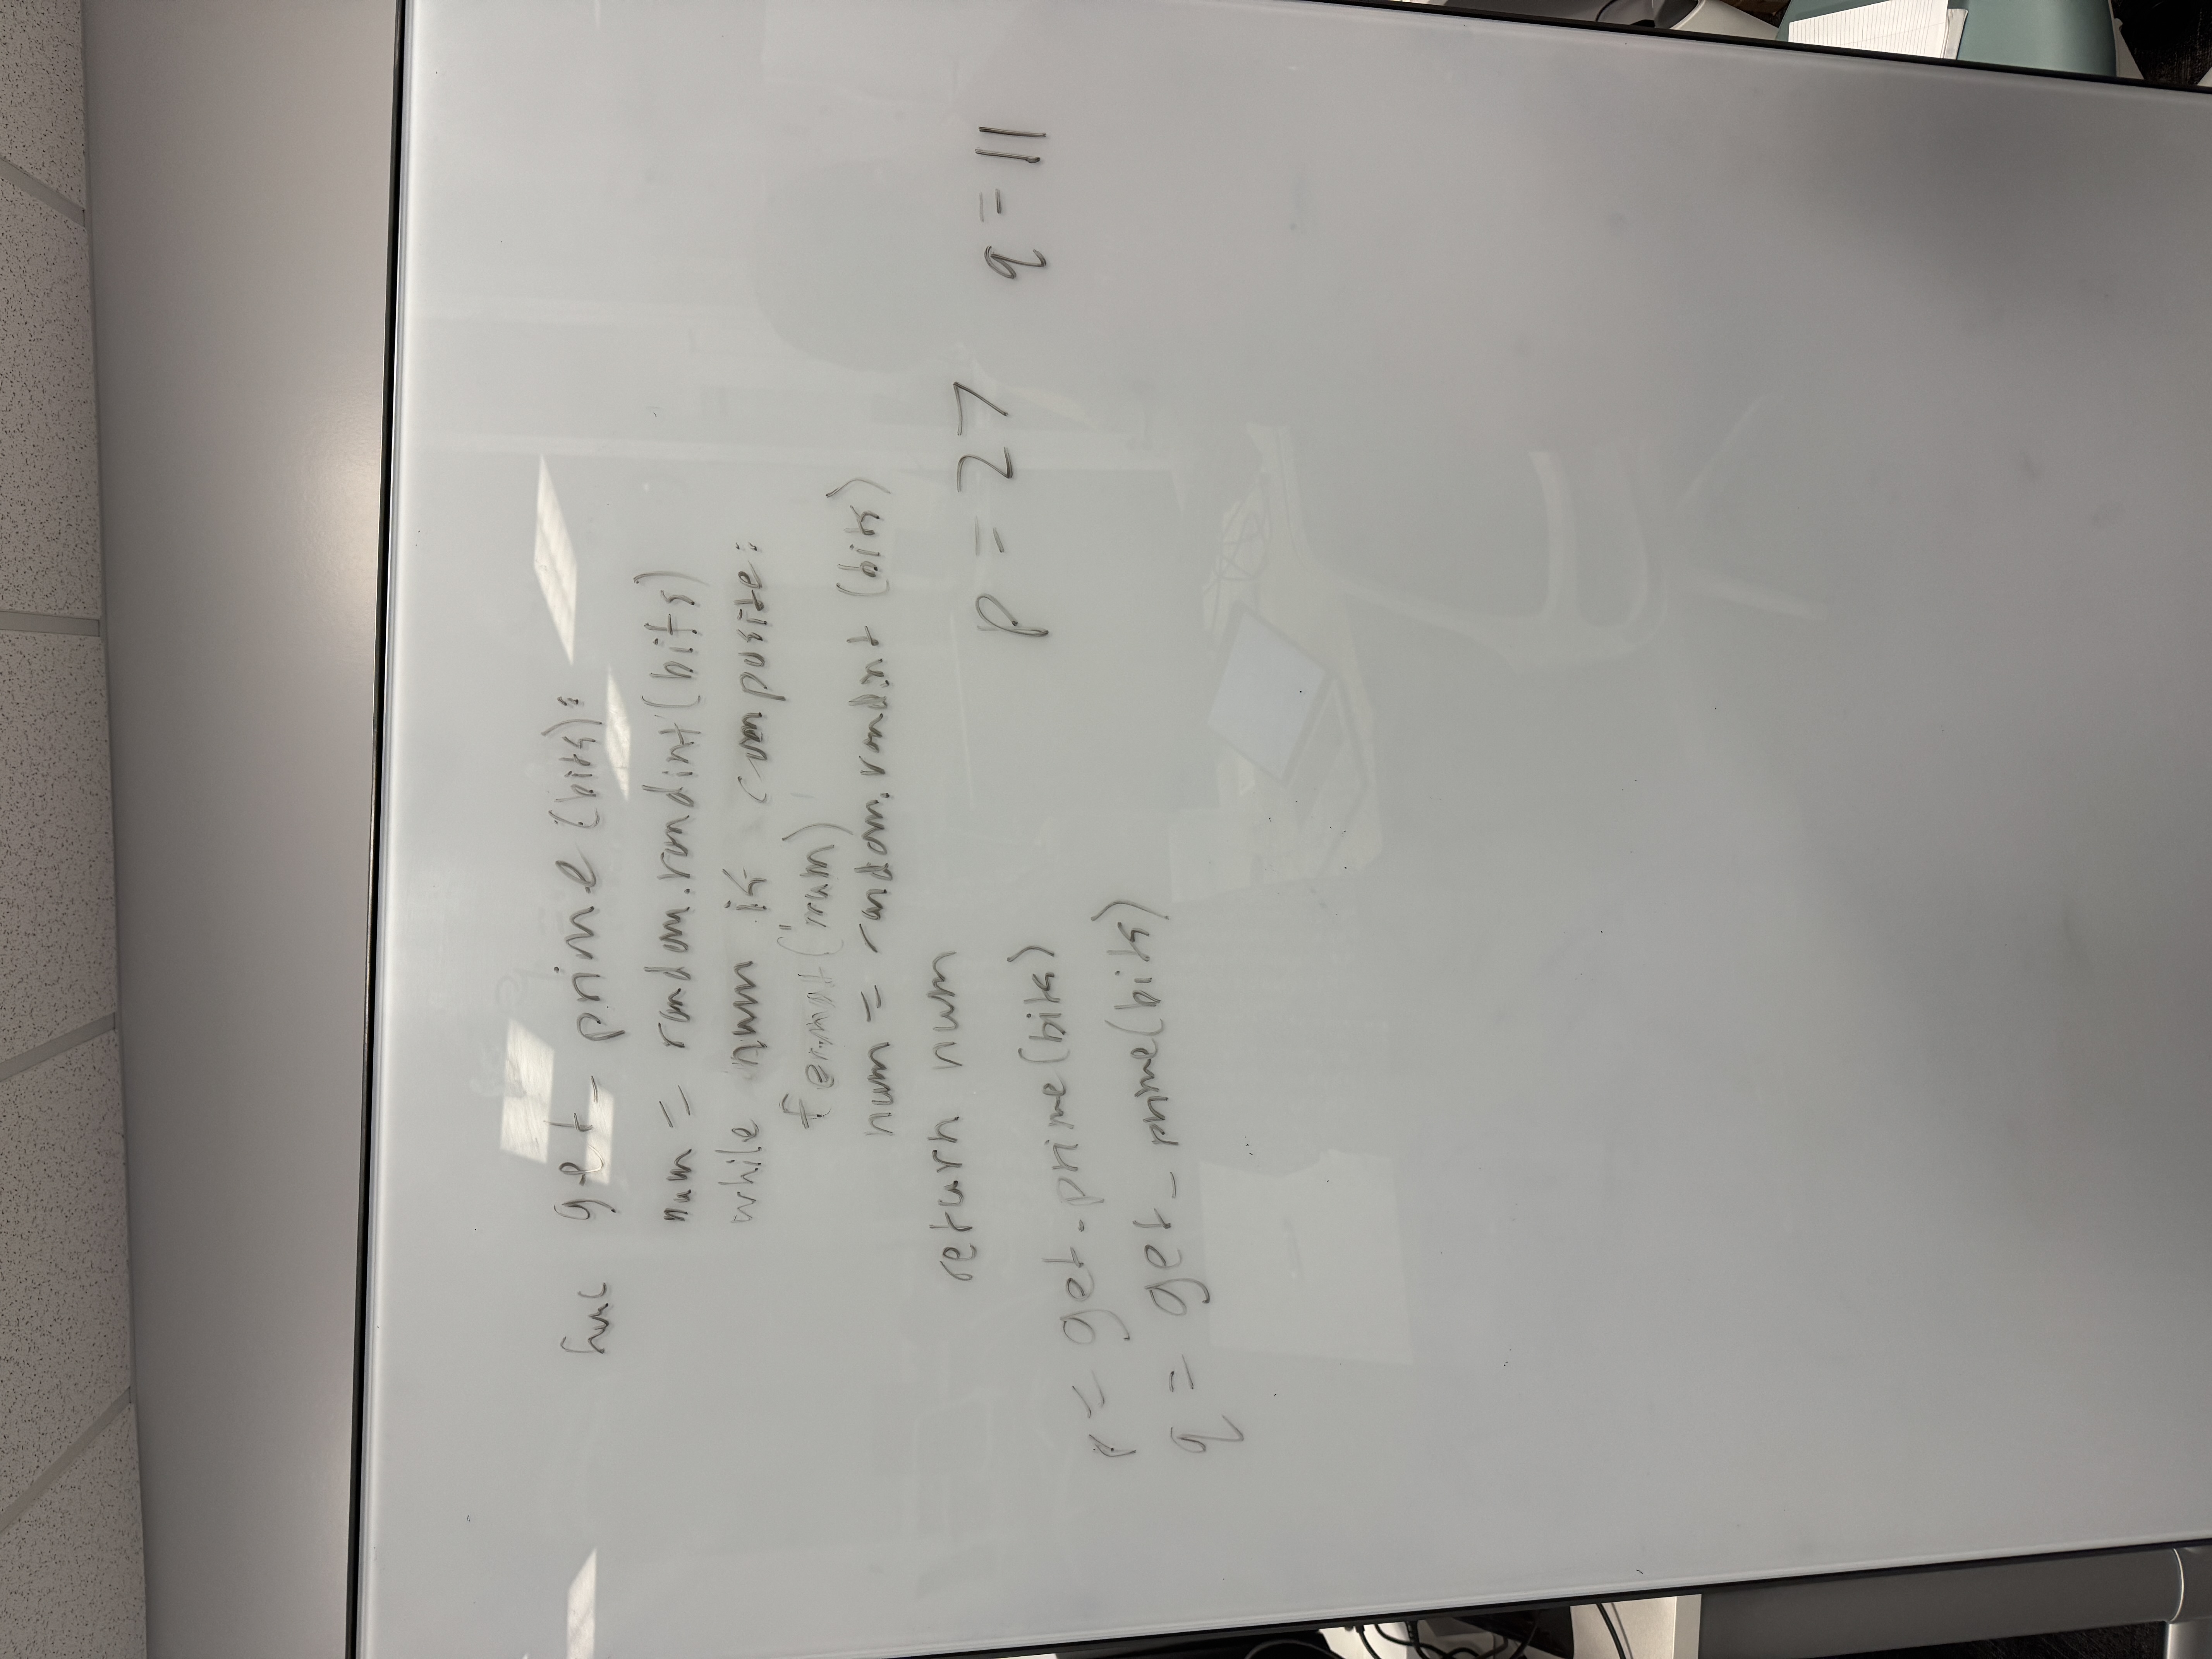 func get_prime(bits):
num = random.randint(bits)
while num is composite:
fermat(num)
num = random.randint(bits)
return num
p = 27 q = 11
p = get_prime(bits)
q = get_prime(bits)